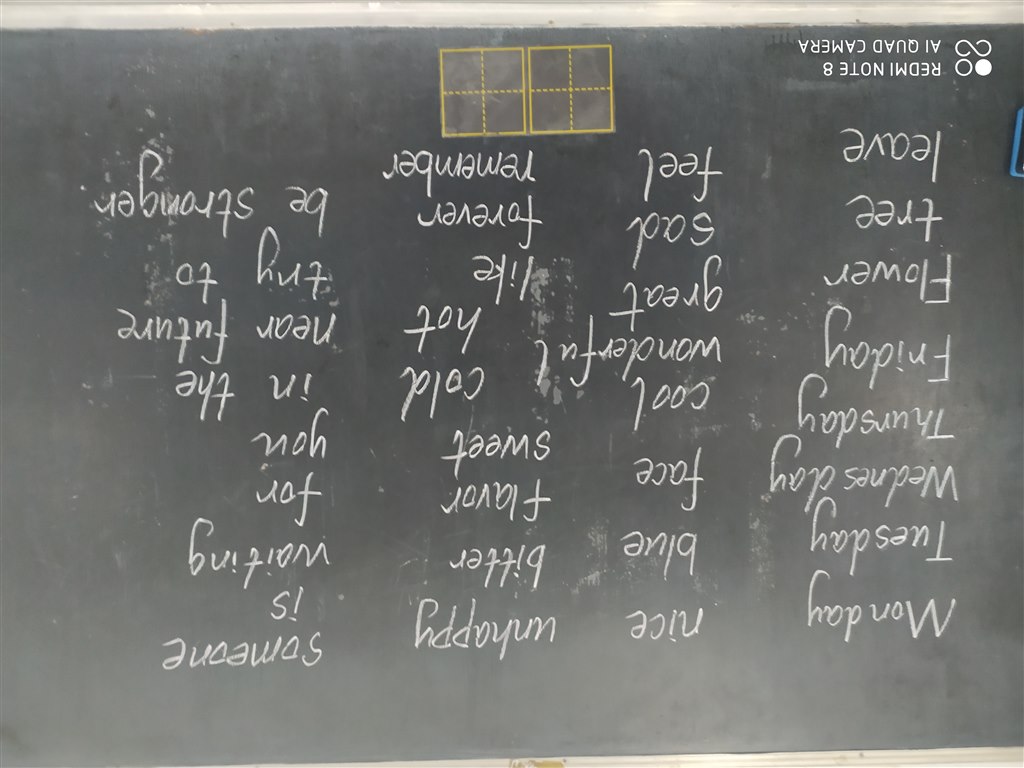 Monday
Tuesday
Wednesday
Thursday
Friday
Flower
tree
leave
nice
blue
face
cool
wonderful
great
sad
feel
unhappy
bitter
flavor
sweet
cold
hot
like
forever
remember
someone
is
waiting
for
you
in the
near future
try to
be stronger
REDMI NOTE 8
AI QUAD CAMERA